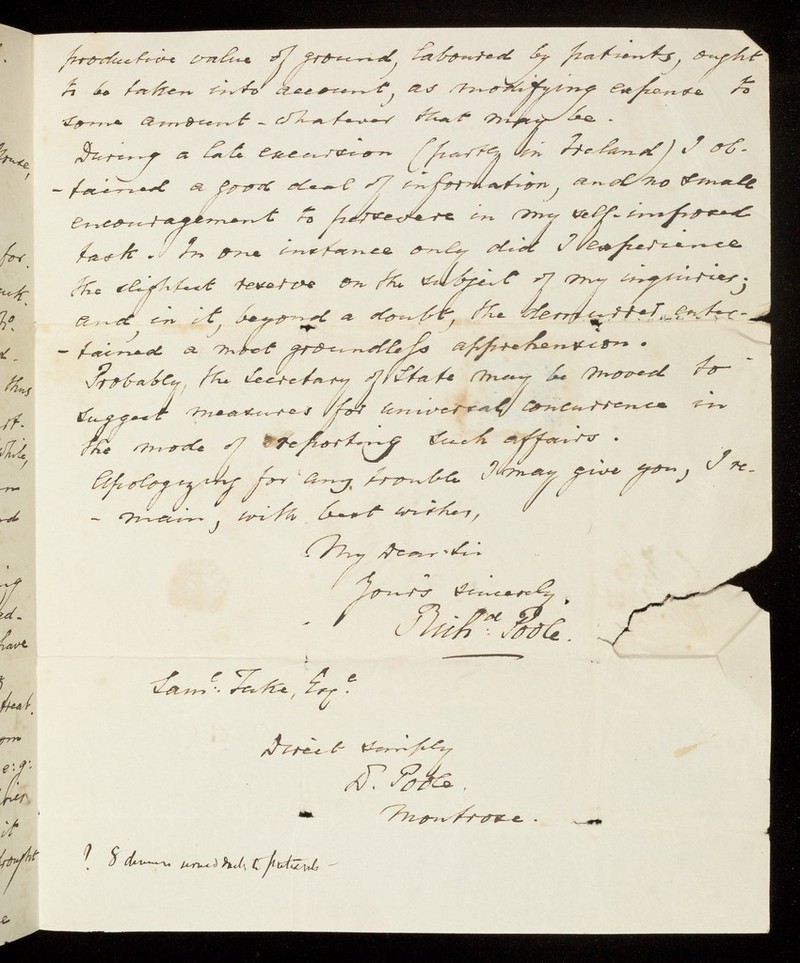 productive value of ground, laboured by patients, ought
to be taken into account, as modifying expense to
some amount - whatever that may be.
During a late excursion (partly in Ireland) I ob-
-tained a good deal of information, and no small
encouragement to persevere in my self-imposed
task. In one instance only did I experience
the slightest reserve on the subject of my inquiries;
and, in it, beyond a doubt, the demurrer enter-
-tained a most groundless apprehension.
Probably, the Secretary of State may be moved to
suggest measures for universal concurrence in
the mode of reporting such affairs.
Apologizing for any trouble I may give you, I re-
-main, with best wishes,
My dear Sir
Your's sincerely,
Richd. Poole.
Saml. Tuke, Esqe.
Direct simply
D. Poole.
Montrose.
? 8
for.
thus
while,
have
treat.
e:g:
it
brought